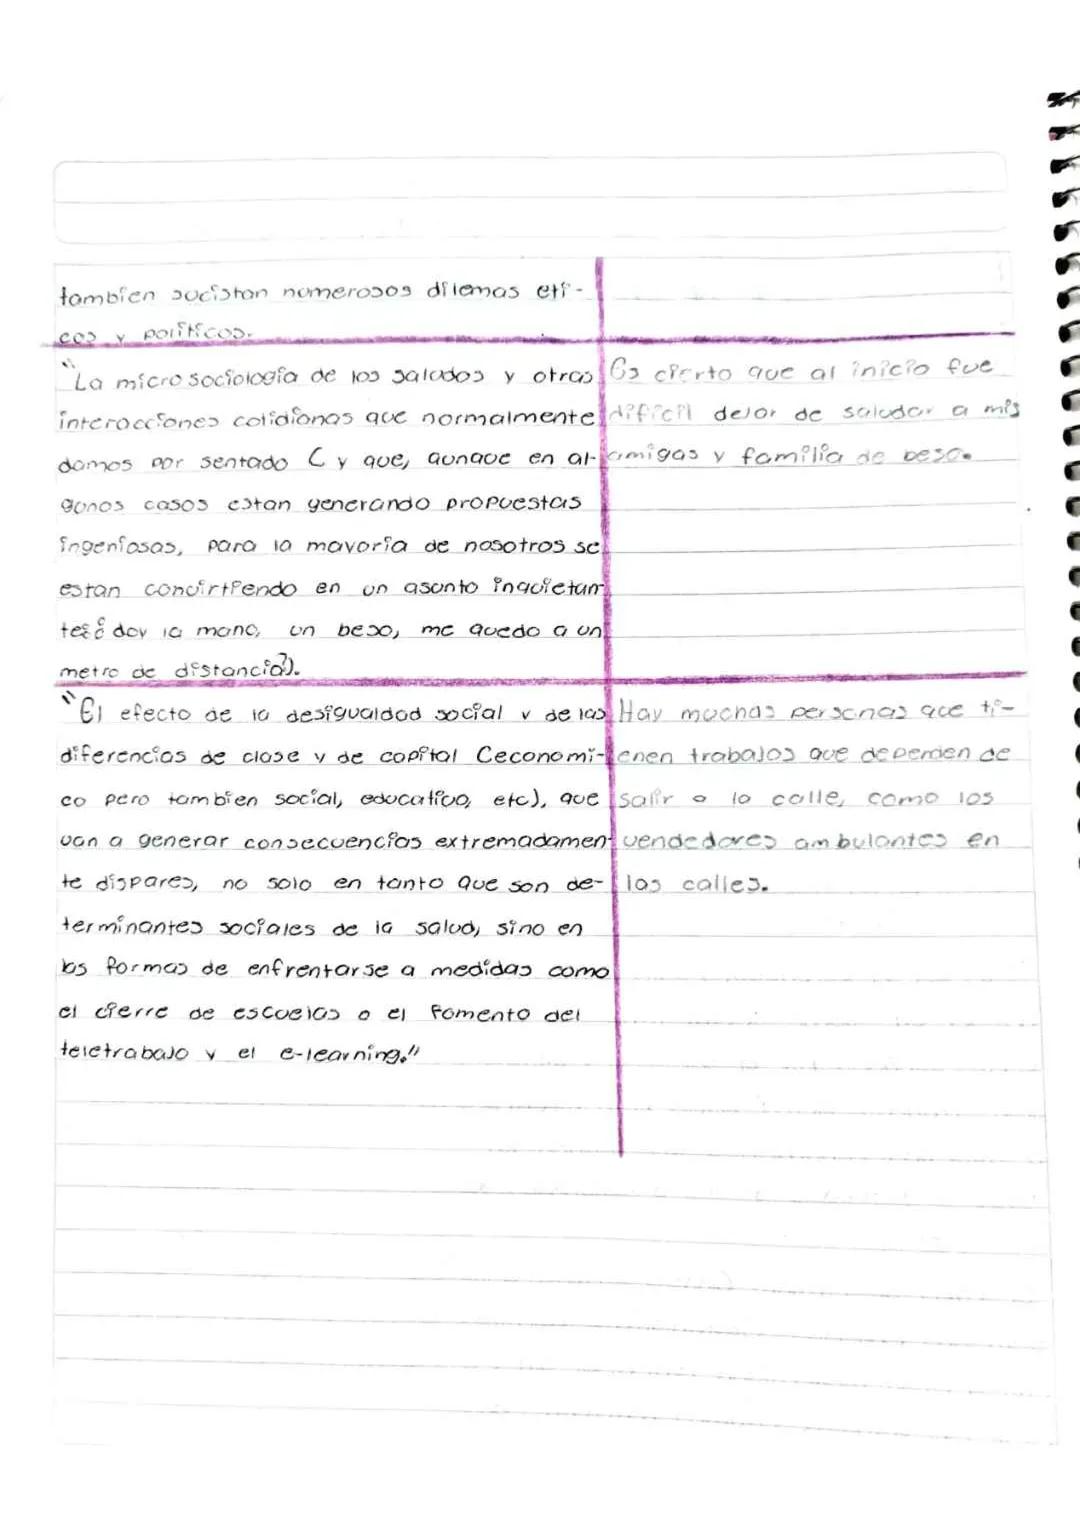 tambien sucistan numerosos dilemas eti-
cos y politicos.
"La micro sociologia de los saludos y otras
interacciones cotidianas que normalmente
damos por sentado (y que, aunque en al-
gunos casos estan generando propuestas
ingeniosas, para la mayoria de nosotros se
estan convirtiendo en un asunto inquietan
te: ¿ doy la mano, un beso, me quedo a un
metro de distancia?).
Es cierto que al inicio fue
dificil dejar de saludar a mis
amigas y familia de beso.
"El efecto de la desigualdad social y de las
diferencias de clase y de capital (economi-
co pero tambien social, educativo, etc), que
van a generar consecuencias extremadamen
te dispares, no solo en tanto que son de-
terminantes sociales de la salud, sino en
las formas de enfrentarse a medidas como
el cierre de escuelas o el fomento del
teletrabajo y el e-learning."
Hay muchas personas que ti-
enen trabajos que dependen de
salir a la calle, como los
vendedores ambulantes en
las calles.